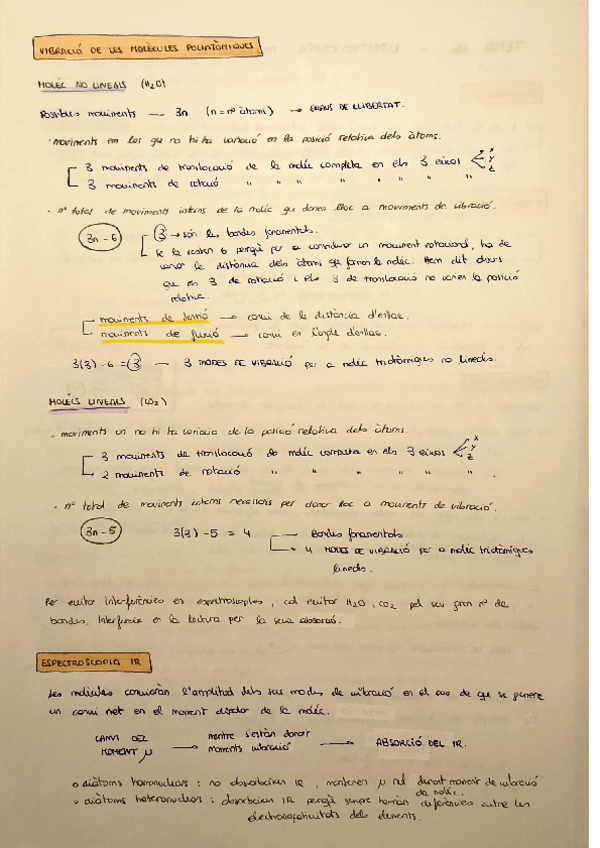 VIBRACIÓ DE LES MOLÈCULES POLIATÒMIQUES
MOLÈC NO LINEALS (H2O)
Possibles moviments — 3n (n = nº àtoms) → GRAUS DE LLIBERTAT.
· moviments em los que no hi ha variació en la posició relativa dels àtoms.
3 moviments de translocació de la molèc completa en els 3 eixos x y z
3 moviments de rotació " " " " " " " "
· nº total de moviments interns de la molèc qu dones lloc a moviments de vibració.
3n-6 3 → són les bandes fonamentals.
Se la resten 6 perquè per a considerar un moviment rotacional, ha de
variar la distància dels àtoms que formen la molèc. Hem dit abans
que en 3 de rotació i els 3 de translocació no varien la posició
relativa.
moviments de tensió → canvi de la distància d'enllaç.
moviments de flexió → canvi en l'angle d'enllaç.
3(3)-6 = 3 — 3 MODES DE VIBRACIÓ per a molèc triatòmiques no lineals.
MOLÈCS LINEALS (CO2)
· moviments on no hi ha variació de la posició relativa dels àtoms.
3 moviments de translocació de molèc completa en els 3 eixos x y z
2 moviments de rotació " " " " " " .
· nº total de moviments interns necessaris per donar lloc a moviments de vibració.
3n-5 3(3)-5 = 4 Bandes fonamentals
4 MODES DE VIBRACIÓ per a molèc triatòmiques
lineals.
Per evitar interferències en espectroscopies, cal evitar H2O i CO2 pel seu gran nº de
bandes. Interfereix en la lectura per la seua absorció.
ESPECTROSCOPIA IR
Les molècules canviaran l'amplitud dels seus modes de vibració en el cas de que se genere
un canvi net en el moment dipolar de la molèc.
CANVI DEL MOMENT μ → mentre s'estan donant moments vibració → ABSORCIÓ DEL IR.
o diàtoms homonuclears: no absorbeixen IR, mantenen μ nul durant moment de vibració
de molèc.
o diàtoms heteronuclears: absorbeixen IR perquè sempre hauran diferències entre les
electronegativitats dels elements.